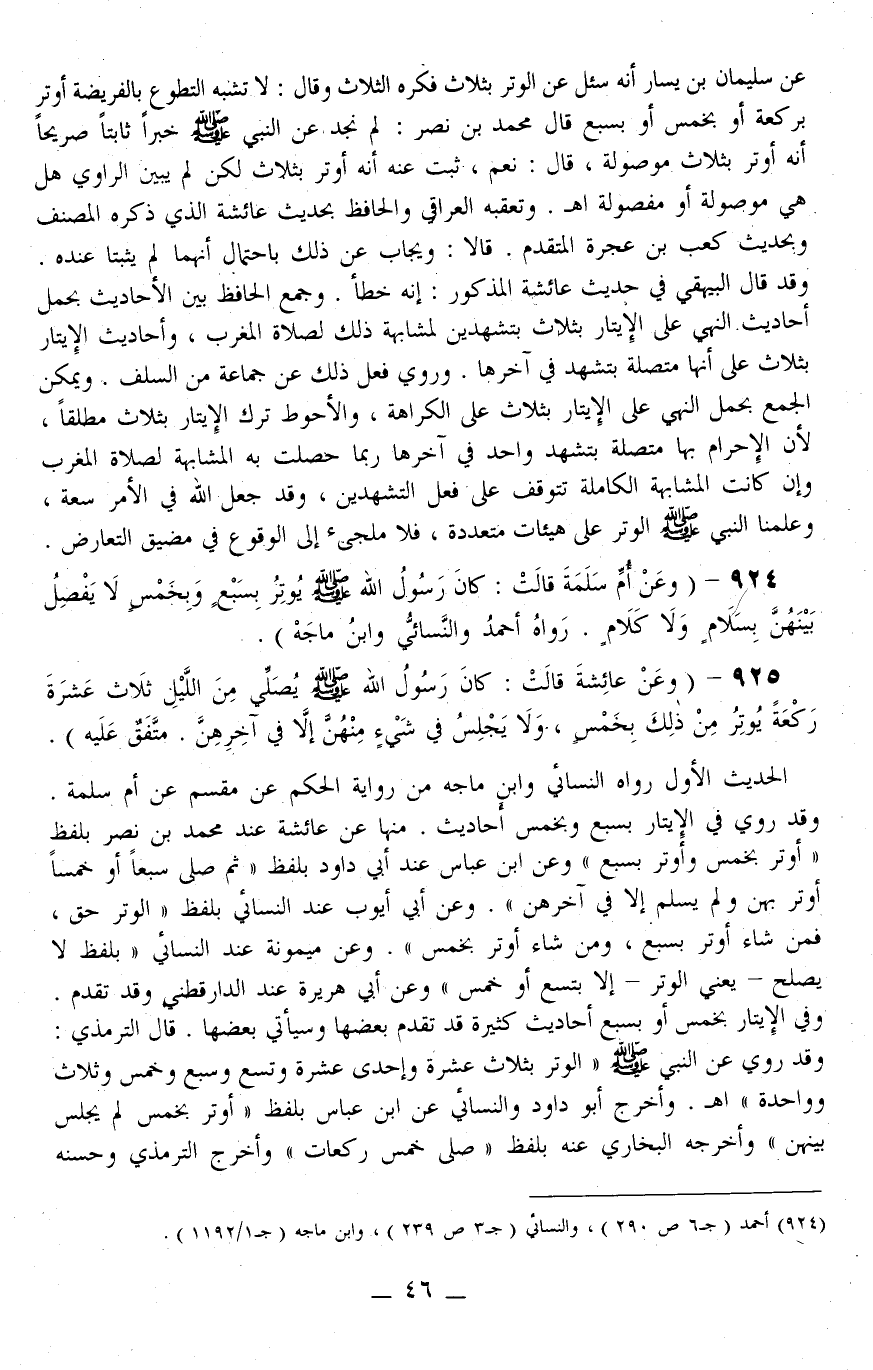 عن سليمان بن يسار أنه سئل عن الوتر بثلاث فكره الثلاث وقال : لا تشبه التطوع بالفريضة أوتر
بركعة أو بخمس أو بسبع قال محمد بن نصر : لم نجد عن النبي ﷺ خبراً ثابتاً صريحاً
أنه أوتر بثلاث موصولة ، قال : نعم ، ثبت عنه أنه أوتر بثلاث لكن لم يبين الراوي هل
هي موصولة أو مفصولة اهـ . وتعقبه العراقي والحافظ بحديث عائشة الذي ذكره المصنف
وبحديث كعب بن عجرة المتقدم . قالا : ويجاب عن ذلك باحتمال أنهما لم يثبتا عنده .
وقد قال البيهقي في حديث عائشة المذكور : إنه خطأ . وجمع الحافظ بين الأحاديث بحمل
أحاديث النهي على الإيتار بثلاث بتشهدين لمشابهة ذلك لصلاة المغرب ، وأحاديث الإيتار
بثلاث على أنها متصلة بتشهد في آخرها . وروي فعل ذلك عن جماعة من السلف . ويمكن
الجمع بحمل النهي على الإيتار بثلاث على الكراهة ، والأحوط ترك الإيتار بثلاث مطلقاً ،
لأن الإحرام بها متصلة بتشهد واحد في آخرها ربما حصلت به المشابهة لصلاة المغرب
وإن كانت المشابهة الكاملة تتوقف على فعل التشهدين ، وقد جعل الله في الأمر سعة ،
وعلمنا النبي ﷺ الوتر على هيئات متعددة ، فلا ملجىء إلى الوقوع في مضيق التعارض .
٩٢٤ – ( وعَنْ أُمِّ سَلَمَةَ قالَتْ : كانَ رَسُولُ الله ﷺ يُوتِرُ بِسَبْعٍ وَبِخَمْسٍ لَا يَفْصِلُ
بَيْنَهُنَّ بِسَلَامٍ وَلَا كَلَامٍ . رَواهُ أحمدُ والنَّسائيُّ وابنُ ماجَهْ ) .
٩٢٥ – ( وعَنْ عائِشةَ قالَتْ : كانَ رَسُولُ الله ﷺ يُصَلِّي مِنَ اللَّيْلِ ثلَاث عَشرَةَ
رَكْعَةً يُوتِرُ مِنْ ذٰلِكَ بِخَمْسٍ ، وَلَا يَجْلِسُ في شَيْءٍ مِنْهُنَّ إلَّا في آخِرِهِنَّ . متَّفَقٌ عَلَيه ) .
الحديث الأول رواه النسائي وابن ماجه من رواية الحكم عن مقسم عن أم سلمة .
وقد روي في الإيتار بسبع وبخمس أحاديث . منها عن عائشة عند محمد بن نصر بلفظ
« أوتر بخمس وأوتر بسبع » وعن ابن عباس عند أبي داود بلفظ « ثم صلى سبعاً أو خمساً
أوتر بهن ولم يسلم إلا في آخرهن » . وعن أبي أيوب عند النسائي بلفظ « الوتر حق ،
فمن شاء أوتر بسبع ، ومن شاء أوتر بخمس » . وعن ميمونة عند النسائي « بلفظ لا
يصلح – يعني الوتر – إلا بتسع أو خمس » وعن أبي هريرة عند الدارقطني وقد تقدم .
وفي الإيتار بخمس أو بسبع أحاديث كثيرة قد تقدم بعضها وسيأتي بعضها . قال الترمذي :
وقد روي عن النبي ﷺ « الوتر بثلاث عشرة وإحدى عشرة وتسع وسبع وخمس وثلاث
وواحدة » اهـ . وأخرج أبو داود والنسائي عن ابن عباس بلفظ « أوتر بخمس لم يجلس
بينهن » وأخرجه البخاري عنه بلفظ « صلى خمس ركعات » وأخرج الترمذي وحسنه
(٩٢٤) أحمد ( جـ٦ ص ٢٩٠ ) ، والنسائي ( جـ٣ ص ٢٣٩ ) ، وابن ماجه ( جـ١/١١٩٢ ) .
– ٤٦ –